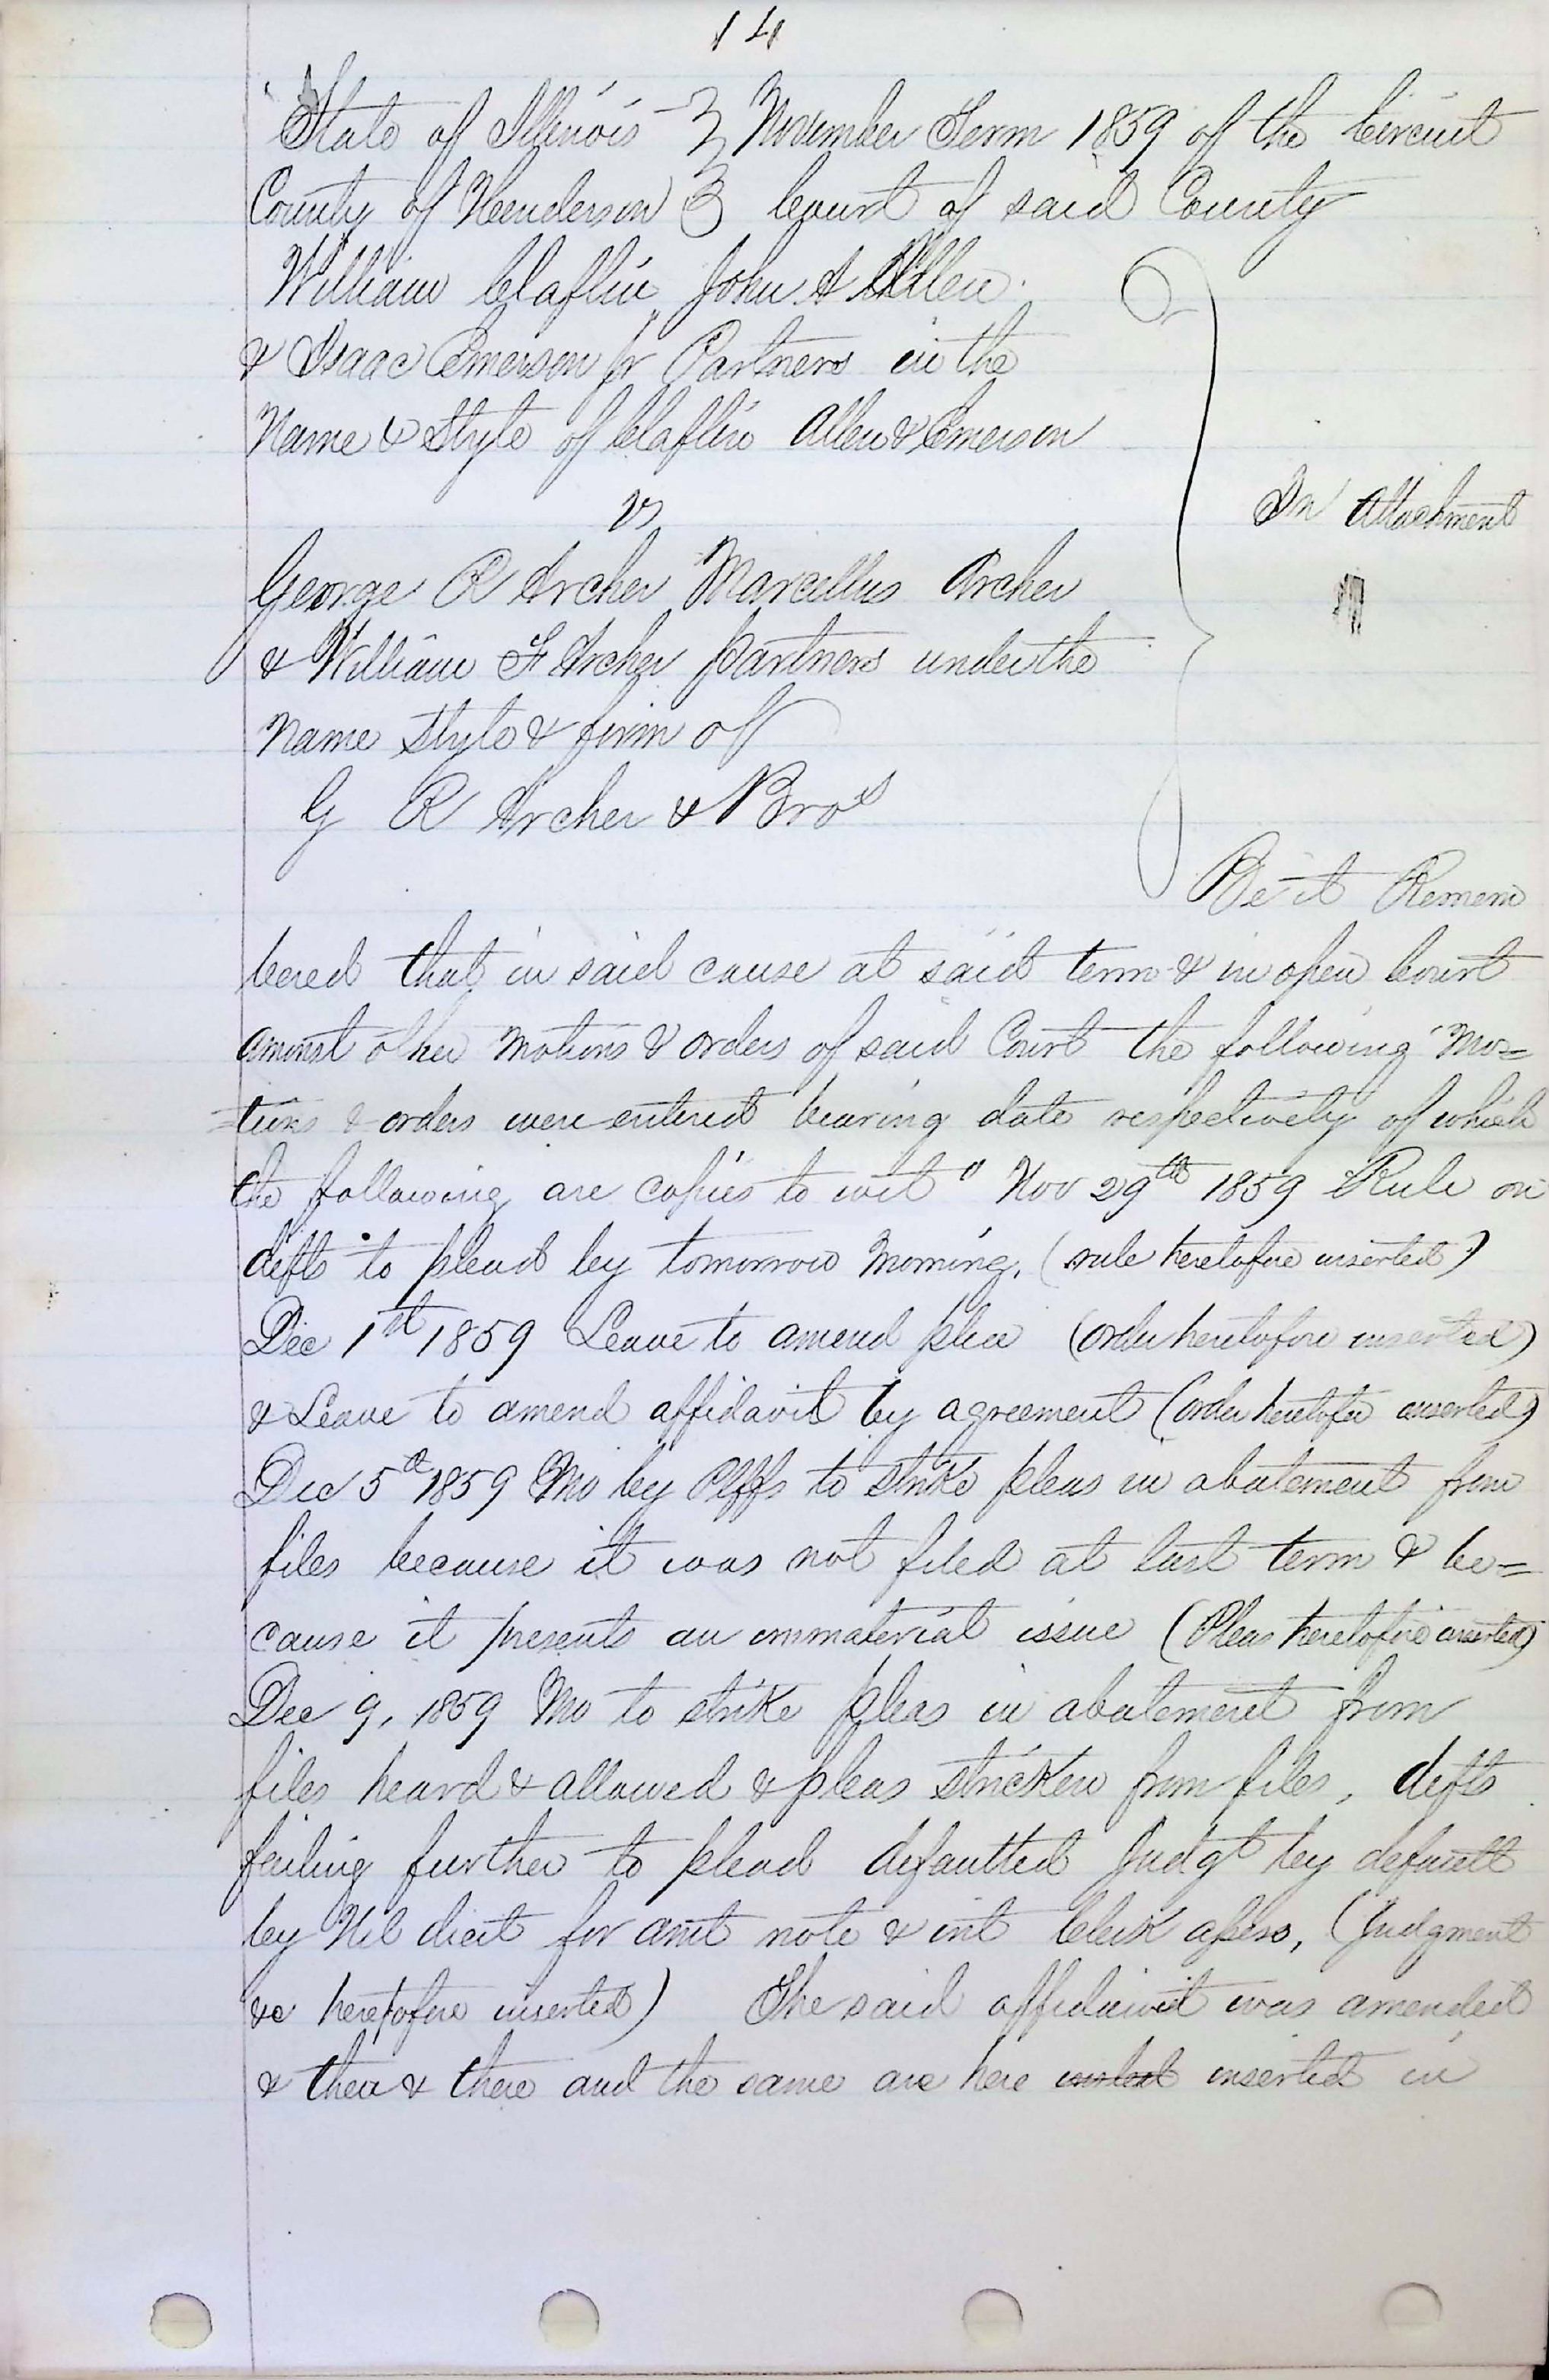 14
State of Illinois } November Term 1859 of the Circuit
County of Henderson } Court of said County
William Claflin John A Allen
& Isaac Emerson Jr Partners in the
Name & Style of Claflin Allen & Emerson
vs
In Attachment
George R Archer Marcellus Archer
& William F Archer partners under the
Name Style & firm of
G R Archer & Bros
Be it Remem
bered that in said cause at said term & in open Court
amonst other motions & orders of said Court the following Mo=
=tions & orders were entered bearing date respectively of which
the following are copies to wit " Nov 29th 1859 Rule on
defts to plead by tomorrow morning. (rule heretofore inserted)
Dec 1st 1859 Leave to amend plea (order heretofore inserted)
& Leave to amend affidavit by agreement (order heretofore inserted)
Dec 5th 1859 Mo by Plffs to strike pleas in abatement from
files because it was not filed at last term & be=
cause it presents an immaterial issue (Pleas heretofore inserted)
Dec 9, 1859 Mo to strike pleas in abatement from
files heard & allowed & pleas stricken from files, defts
failing further to plead defaulted Judgt by default
by Nil dicit for amt note & int Clerk assess, (Judgment
&c heretofore inserted) The said affidavit was amended
& then & there and the same are here inserted in